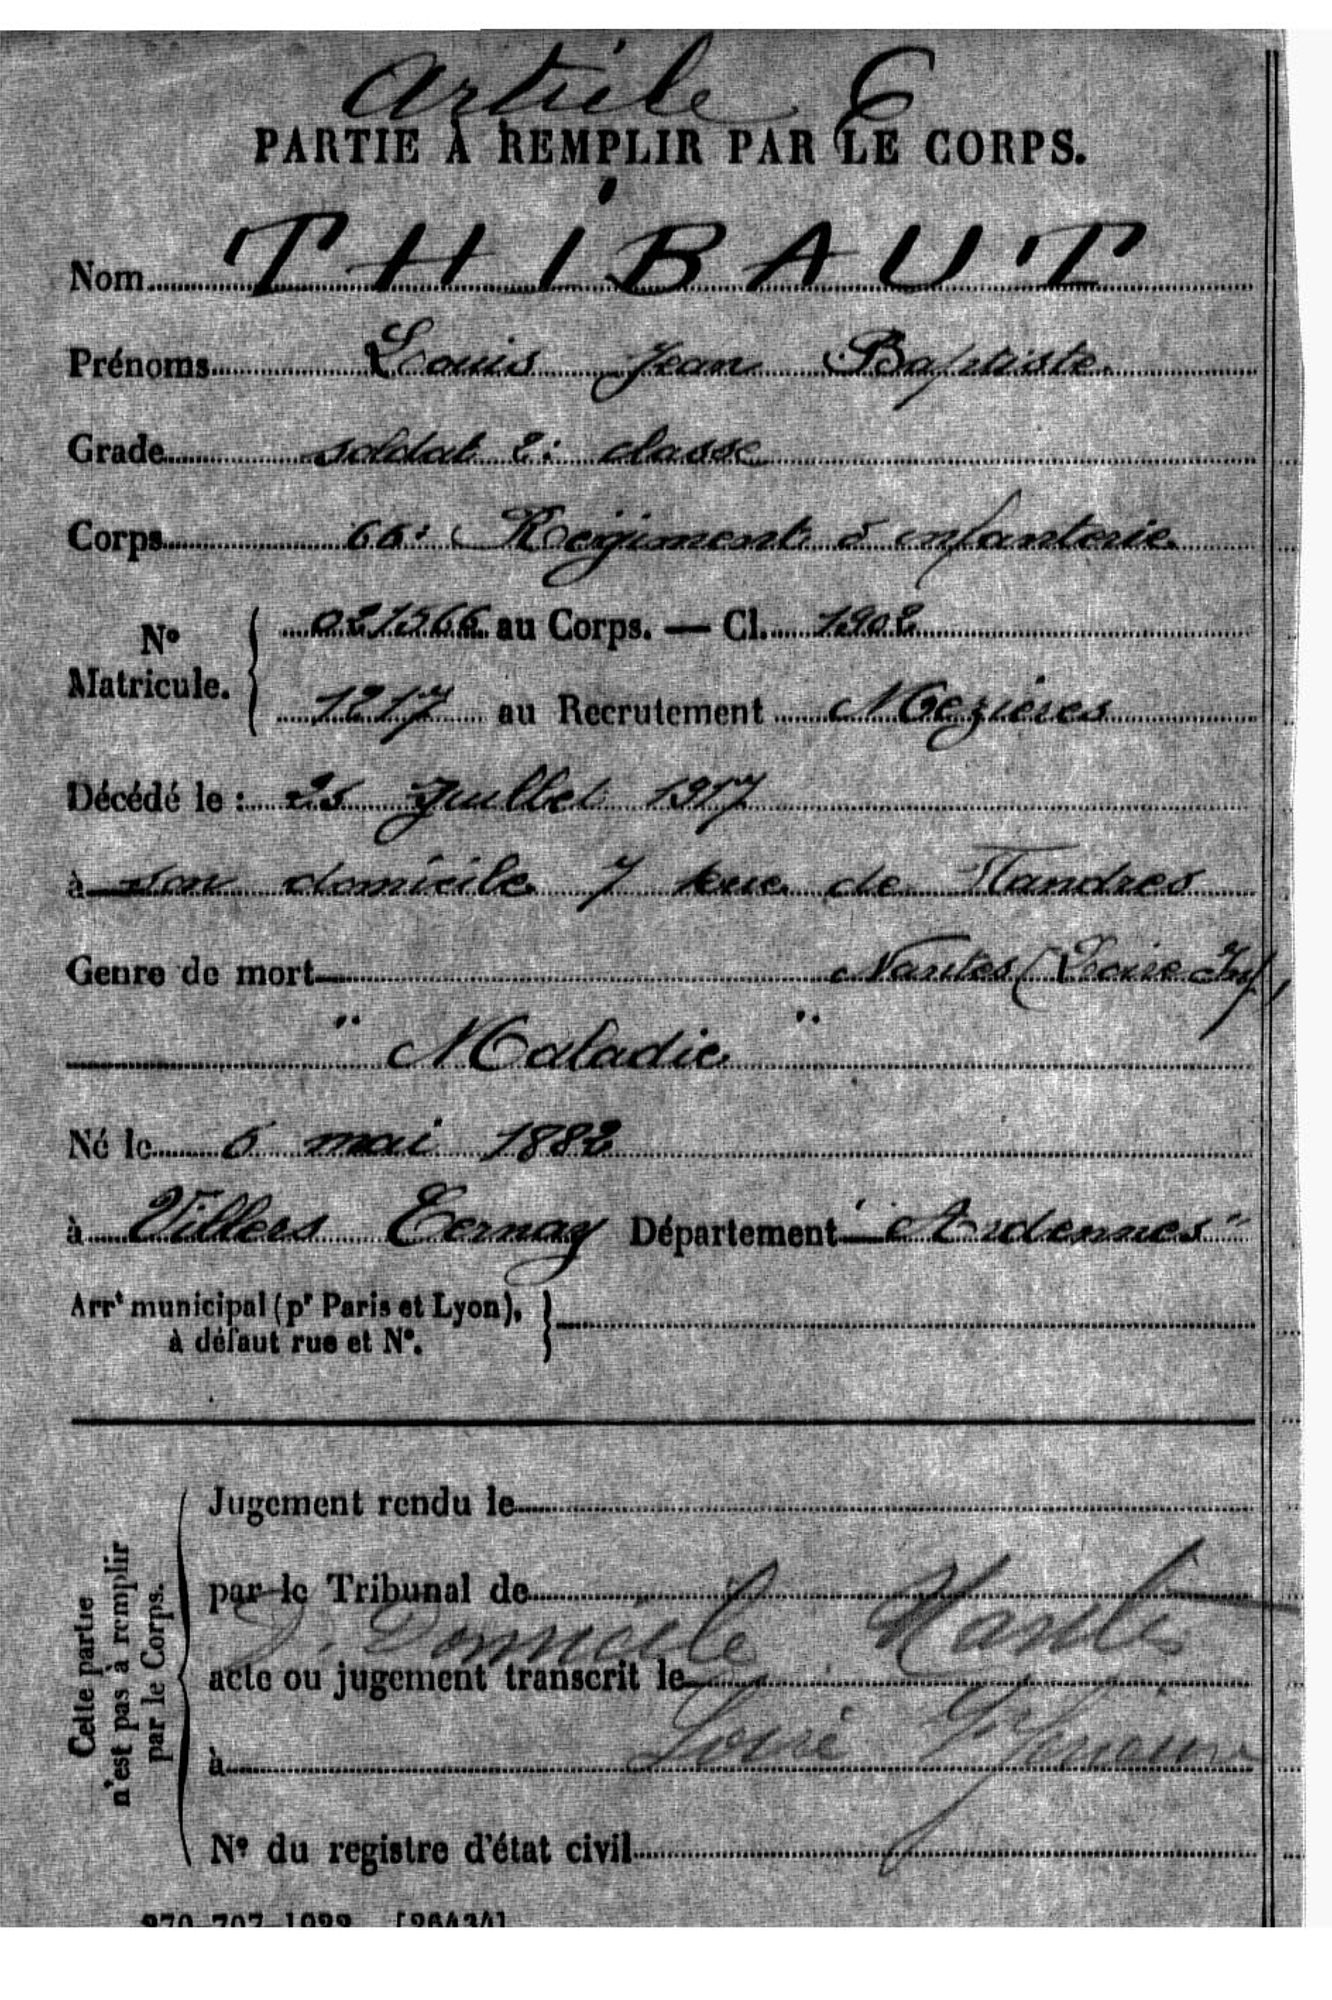 Article 6
PARTIE À REMPLIR PAR LE CORPS.
Nom THIBAUT
Prénoms Louis Jean Baptiste
Grade soldat 2e classe
Corps Régiment d'infanterie
No Matricule. 021566 au Corps. — Cl. 1902
1217 au Recrutement Mezières
Décédé le : 25 Juillet 1917
à son domicile 7 Rue de Flandres
Genre de mort Nantes (Loire Inf)
" Maladie "
Né le 6 mai 1882
à Villers Cernay Département "Ardennes"
Arrt municipal (pr Paris et Lyon), à défaut rue et No.
Cette partie n'est pas à remplir par le Corps.
Jugement rendu le
par le Tribunal de
D. Domicile Nantes
acte ou jugement transcrit le
Loire Inférieure
à
No du registre d'état civil